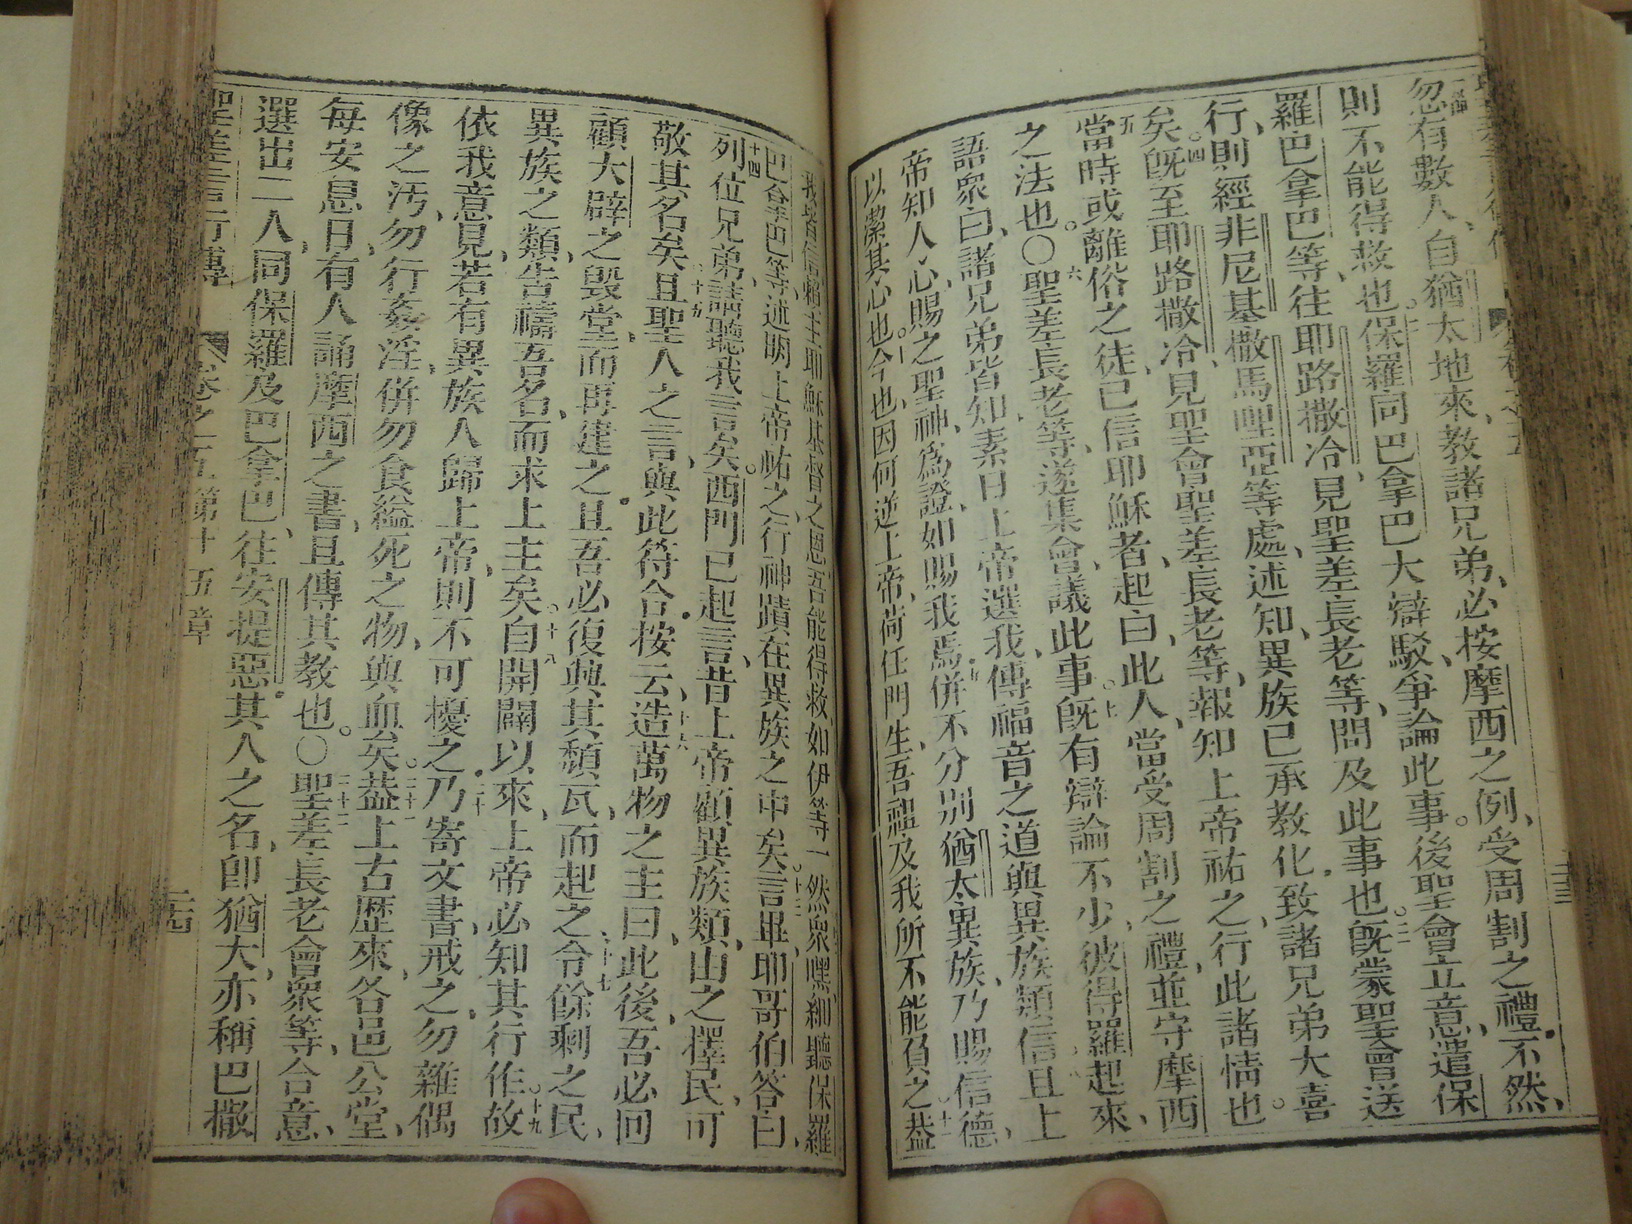 忽有數人、自猶太地來、教諸兄弟、必按摩西之例、受周割之禮、不然、
則不能得救也。保羅同巴拿巴大辯駁、爭論此事。後聖會立意、遣保
羅巴拿巴等、往耶路撒冷、見聖差長老等、問及此事也。既蒙聖會送
行、則經非尼基撒馬哩亞等處、述知、異族已承教化、致諸兄弟大喜
矣。四既至耶路撒冷、見聖會聖差長老等、報知上帝祐之、行此諸情也。
五當時或離俗之徒、已信耶穌者、起曰、此人、當受周割之禮、並守摩西
之法也。〇六聖差長老等、遂集會、議此事。七既有辯論不少、彼得羅起來、
語眾曰、諸兄弟皆知、素日上帝選我、傳福音之道與異族類、信且上
帝知人心、賜之聖神、為證、如賜我焉、併不分別猶太異族、乃賜信德、
以潔其心也。十今也、因何逆上帝、荷任門生、吾祖及我所不能負之、十一蓋
我等信賴主耶穌基督之恩、吾能得救、如伊等一然眾嘿細聽保羅
巴拿巴等、述明上帝祐之、行神蹟在異族之中矣。十三言畢、耶哥伯答曰、
十四列位兄弟、請聽我言矣。西門已起言、昔上帝顧異族類、由之擇民、可
敬其名矣。十五且聖人之言、與此符合、按云、十六造萬物之主曰、此後、吾必回
顧大辟之毀堂、而再建之、且吾必復興其頹瓦、而起之、十七令餘剩之民、
異族之類、告禱吾名、而求上主矣。十八自開闢以來、上帝必知其行作、十九故
依我意見、若有異族人歸上帝、則不可擾之。二十乃寄文書、戒之、勿雜偶
像之汚、勿行姦淫、併勿食縊死之物、與血矣。二十一蓋上古歷來、各邑公堂、
每安息日、有人誦摩西之書、且傳其教也。〇二十二聖差長老會眾等、合意、
選出二人、同保羅及巴拿巴、往安提惡、其人之名、即猶大、亦稱巴撒
聖差言行傳 卷之五 第十五章 二十四